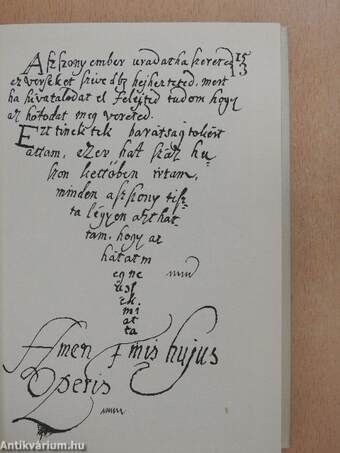 Aszszony ember uradat ha szereted 15
ez verseket szivedbz hejhezteted, mert 13
ha hivatalodat el felejted tudom hogy
az hótodat meg vereted.
Ezt tinektek barátság tokért
attam, ezer hat száz hu
szon kettőben irtam,
minden aszszony tisz
ta légyen azt hat
tam, hogy az
hátatm
eg ne
üsl
ék.
mi
at
ta
Amen Finis hujus
Operis
Antikvarium.hu